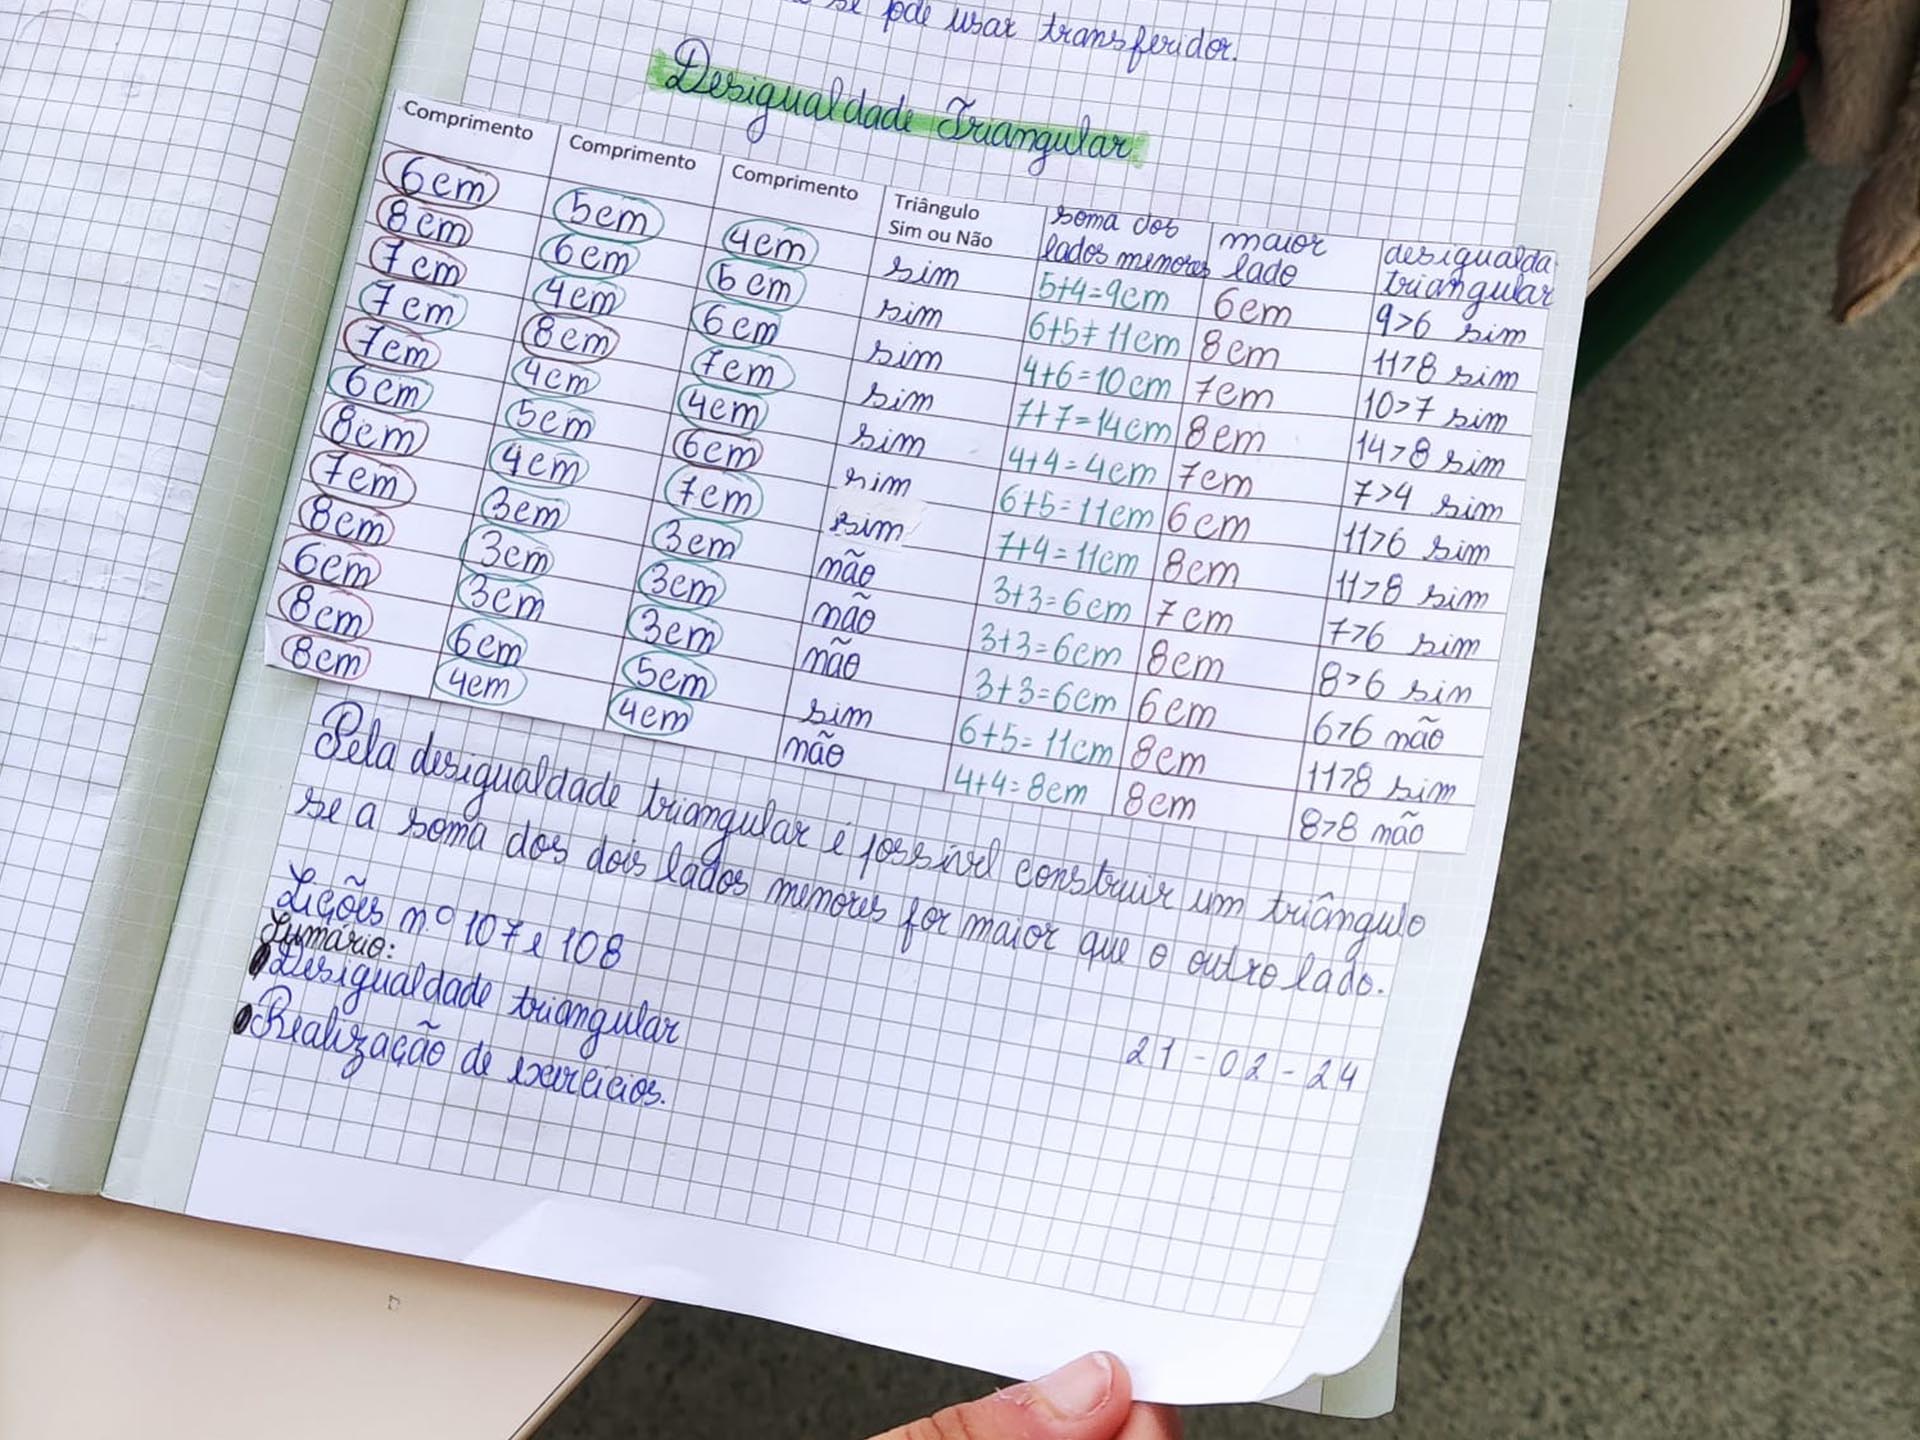 se pode usar transferidor.
Desigualdade Triangular
Comprimento Comprimento Comprimento Triângulo Sim ou Não soma dos lados menores maior lado desigualda triangular
6cm 5cm 4cm sim 5+4=9cm 6cm 9>6 sim
8cm 6cm 5cm sim 6+5=11cm 8cm 11>8 sim
7cm 4cm 6cm sim 4+6=10cm 7cm 10>7 sim
7cm 8cm 7cm sim 7+7=14cm 8cm 14>8 sim
7cm 4cm 4cm sim 4+4=4cm 7cm 7>4 sim
6cm 5cm 6cm sim 6+5=11cm 6cm 11>6 sim
8cm 4cm 7cm sim 7+4=11cm 8cm 11>8 sim
7cm 3cm 3cm não 3+3=6cm 7cm 7>6 sim
8cm 3cm 3cm não 3+3=6cm 8cm 8>6 sin
6cm 3cm 3cm não 3+3=6cm 6cm 6>6 não
8cm 6cm 5cm sim 6+5=11cm 8cm 11>8 sim
8cm 4cm 4cm não 4+4=8cm 8cm 8>8 não
Pela desigualdade triangular é possível construir um triângulo
se a soma dos dois lados menores for maior que o outro lado.
Lições n.º 107 e 108
21-02-24
Sumário:
Desigualdade triangular
Realização de exercícios.